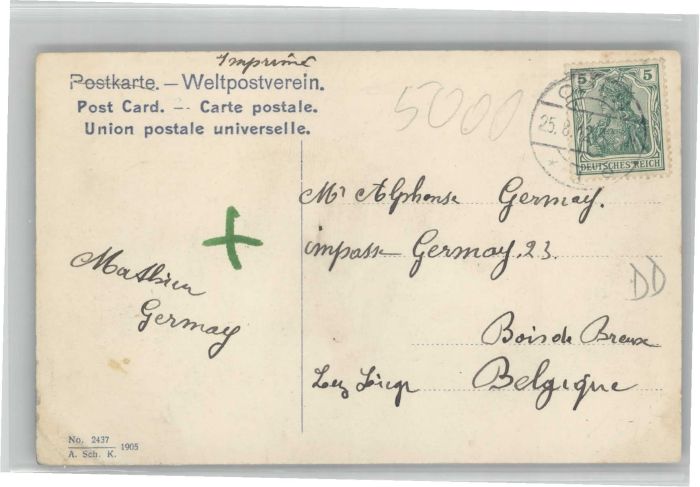 Imprimé
Postkarte. – Weltpostverein.
Post Card. – Carte postale.
Union postale universelle.
5000
5 5
DEUTSCHES REICH
25.8.
Mr Alphonse Germay.
impasse Germay. 23.
DD
Mathieu
Germay
Bois de Breux
Lez Liége Belgique
No. 2437
1905
A. Sch. K.